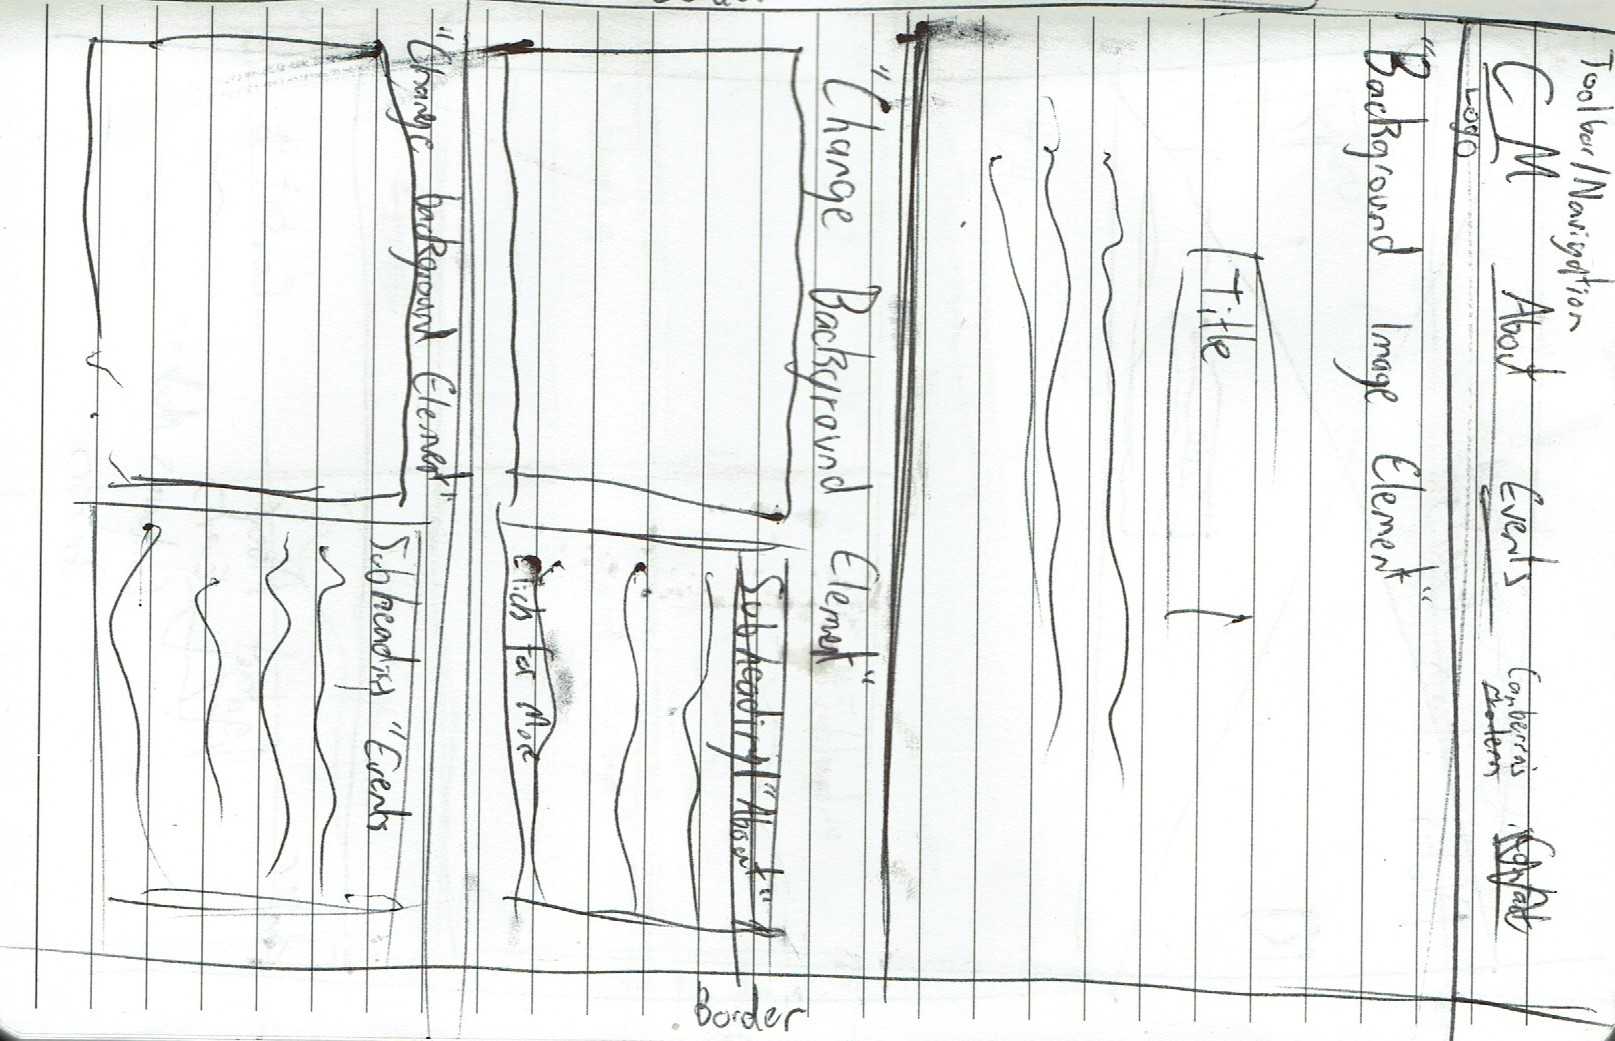 Toolbar/Navigation
C M About Events Canberra's Contact
Modern
Logo
"Background Image Element"
Title
"Change Background Element"
Subheading "About"
Border
Click for More
"Change background Element"
Subheading "Events